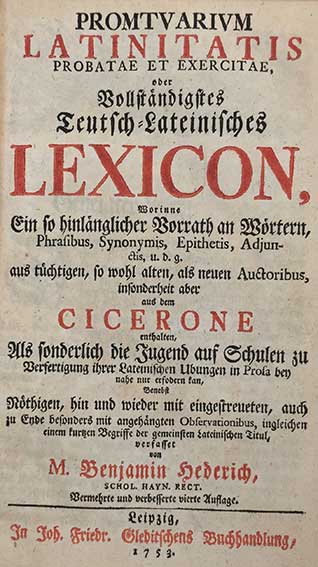 PROMTVARIVM
LATINITATIS
PROBATAE ET EXERCITAE,
oder
Vollständigstes
Teutsch-Lateinisches
LEXICON,
Worinne
Ein so hinlänglicher Vorrath an Wörtern,
Phrasibus, Synonymis, Epithetis, Adjun-
ctis, u. d. g.
aus tüchtigen, so wohl alten, als neuen Auctoribus,
insonderheit aber
aus dem
CICERONE
enthalten,
Als sonderlich die Jugend auf Schulen zu
Verfertigung ihrer Lateinischen Ubungen in Prosa bey
nahe nur erfodern kan,
Benebst
Nöthigen, hin und wieder mit eingestreueten, auch
zu Ende besonders mit angehängten Observationibus, ingleichen
einem kurtzen Begriffe der gemeinsten Lateinischen Titul,
verfasset
von
M. Benjamin Hederich,
SCHOL. HAYN. RECT.
Vermehrte und verbesserte vierte Auflage.
Leipzig,
In Joh. Friedr. Gleditschens Buchhandlung,
1753.